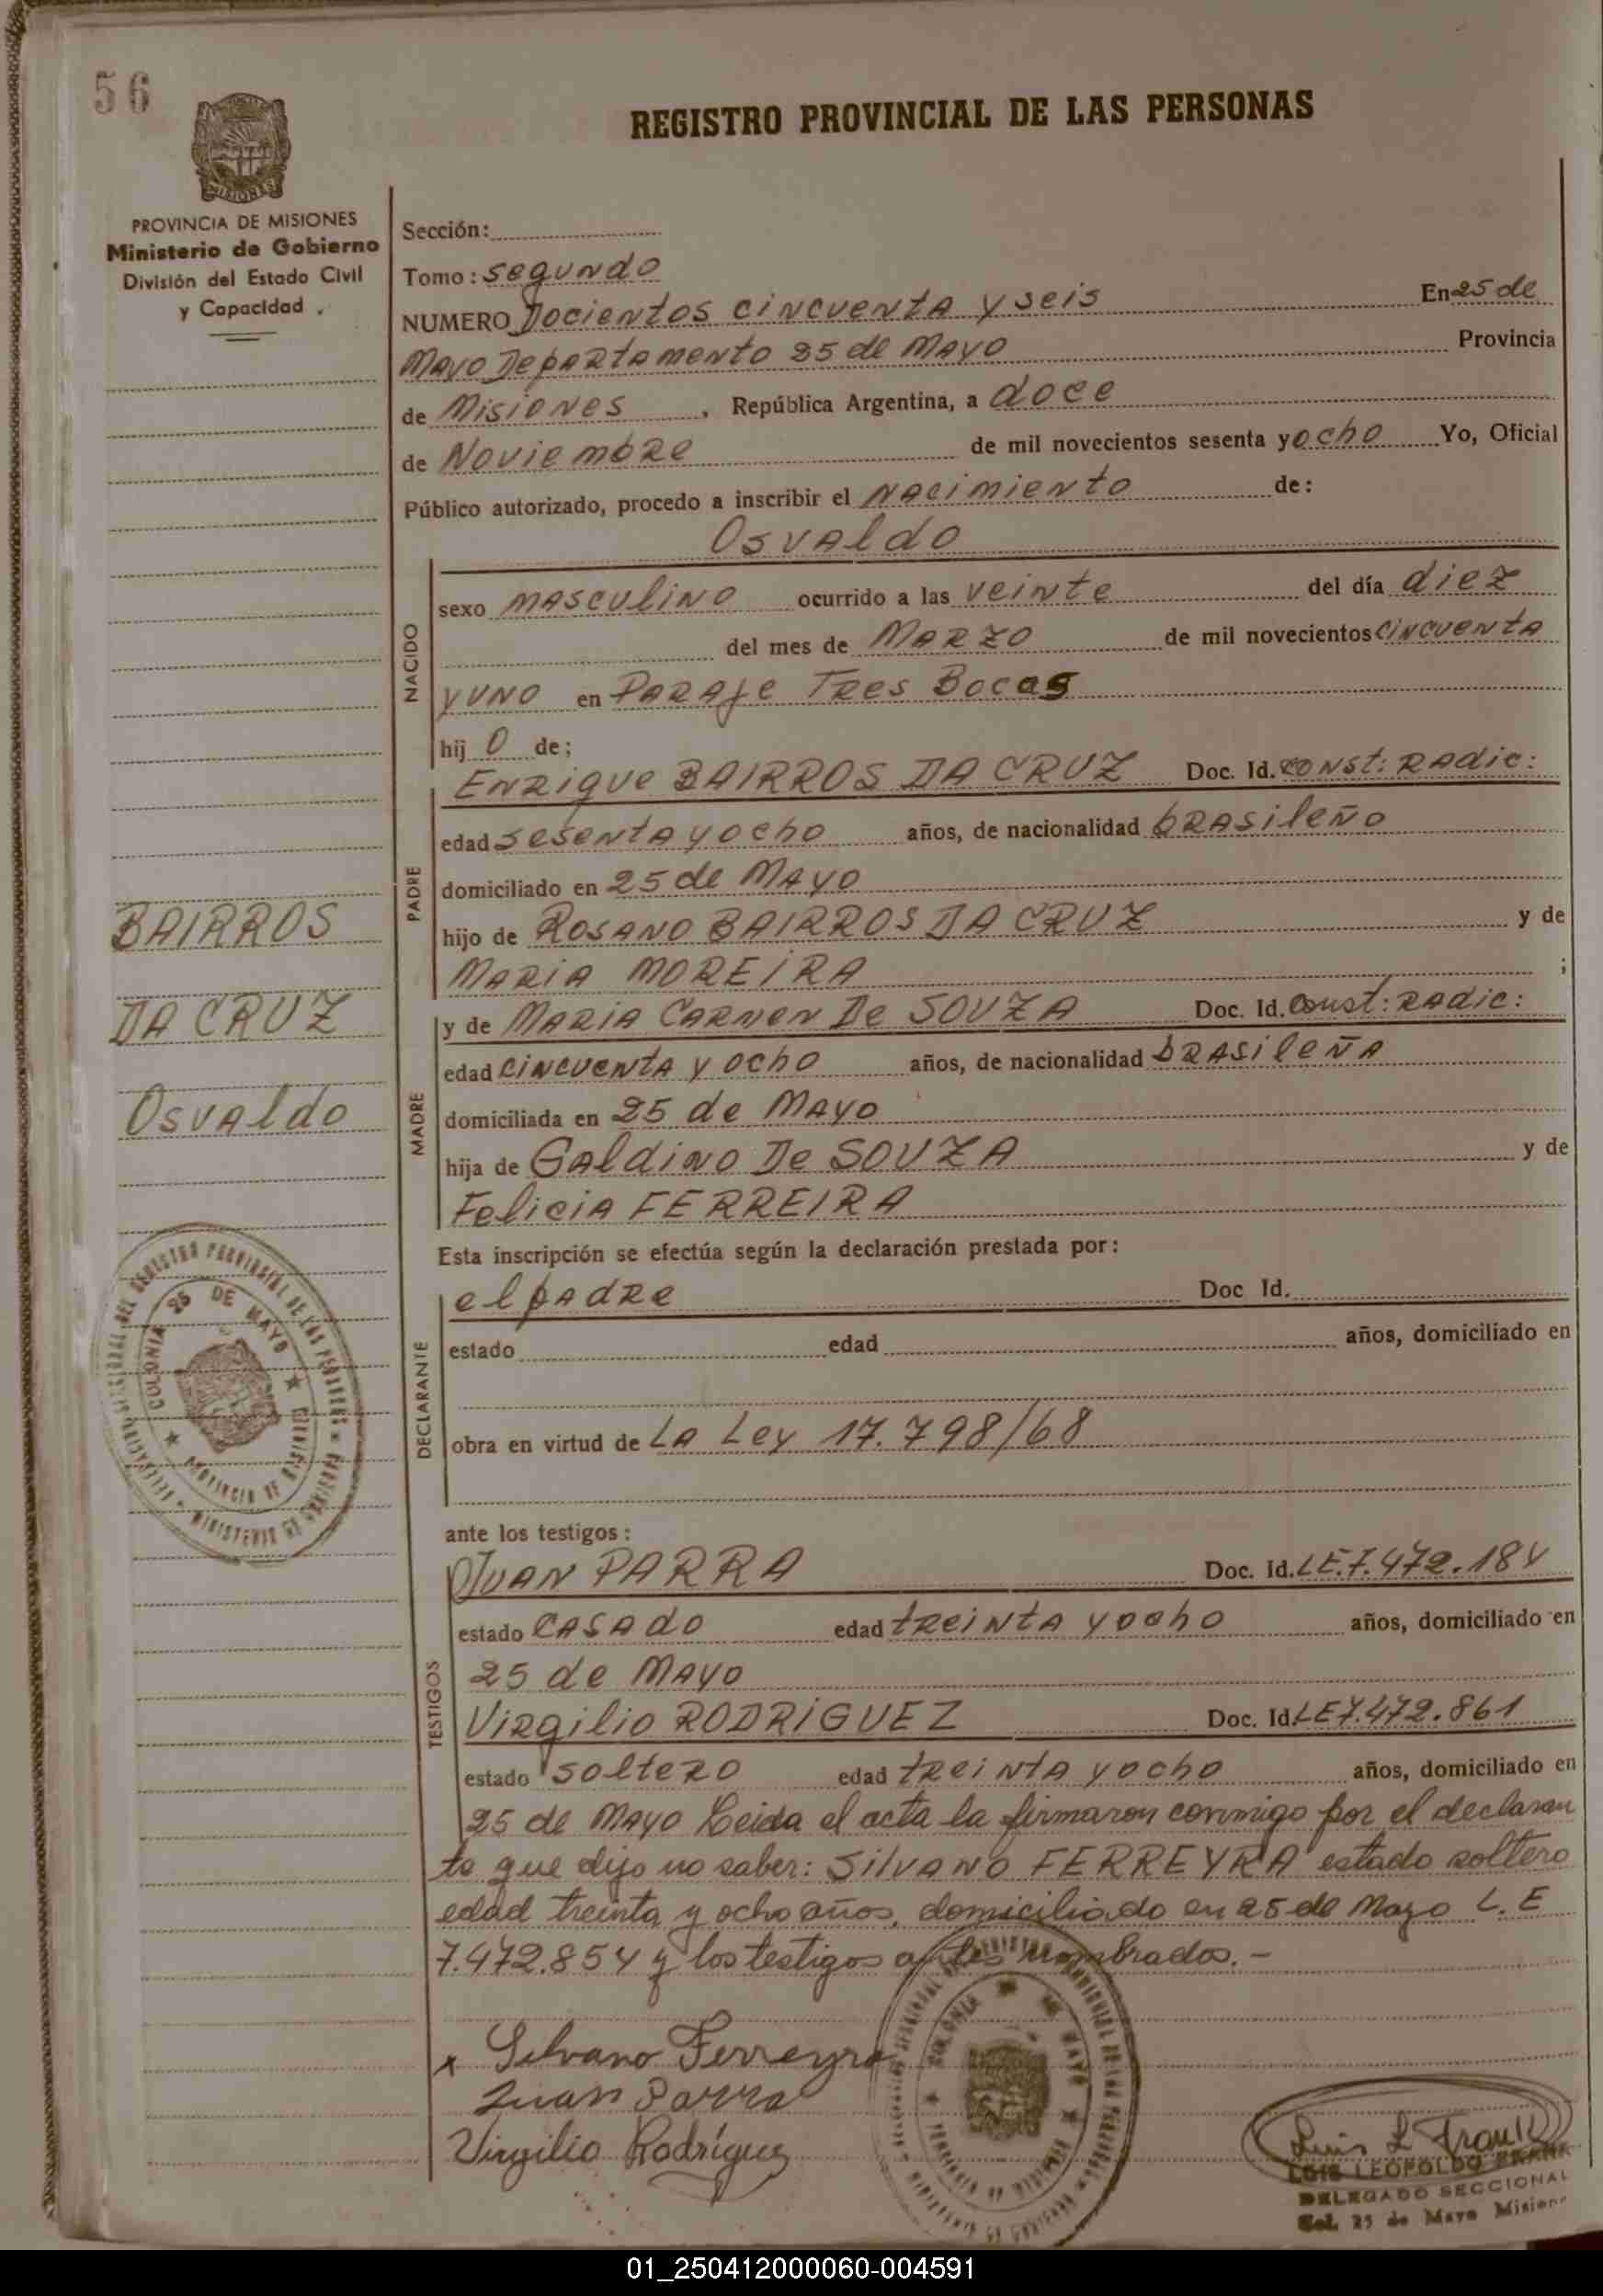 56
REGISTRO PROVINCIAL DE LAS PERSONAS
MISIONES
PROVINCIA DE MISIONES
Ministerio de Gobierno
División del Estado Civil
y Capacidad
Sección:
Tomo: segundo
NUMERO Docientos cincuenta y seis En 25 de
Mayo Departamento 25 de Mayo Provincia
de Misiones, República Argentina, a doce
de Noviembre de mil novecientos sesenta y ocho Yo, Oficial
Público autorizado, procedo a inscribir el nacimiento de:
Osvaldo
NACIDO
sexo masculino ocurrido a las veinte del día diez
del mes de Marzo de mil novecientos cincuenta
y uno en Paraje Tres Bocas
hij o de;
Enrique BAIRROS DA CRUZ Doc. Id. const: Radic:
PADRE
edad sesenta y ocho años, de nacionalidad brasileño
domiciliado en 25 de Mayo
hijo de Rosano BAIRROS DA CRUZ y de
Maria MOREIRA ;
BAIRROS
DA CRUZ
Osvaldo
y de Maria Carmen De SOUZA Doc. Id. const: radic:
MADRE
edad cincuenta y ocho años, de nacionalidad brasileña
domiciliada en 25 de Mayo
hija de Galdino De SOUZA y de
Felicia FERREIRA
Esta inscripción se efectúa según la declaración prestada por:
DECLARANTE
el padre Doc Id.
estado edad años, domiciliado en
obra en virtud de La Ley 17.798/68
COLONIA 25 DE MAYO
PROVINCIA DE MISIONES
ante los testigos:
TESTIGOS
Juan PARRA Doc. Id. LE.7.472.184
estado casado edad treinta y ocho años, domiciliado en
25 de Mayo
Virgilio RODRIGUEZ Doc. Id. LE7.472.861
estado soltero edad treinta y ocho años, domiciliado en
25 de Mayo Leida el acta la firmaron conmigo por el declaran
te que dijo no saber: Silvano FERREYRA estado soltero
edad treinta y ocho años, domiciliado en 25 de Mayo L.E
7.472.854 y los testigos antes nombrados.-
x Silvano Ferreyra
Juan Parra
Virgilio Rodríguez
Luis L Frank
LUIS LEOPOLDO FRANK
DELEGADO SECCIONAL
Col. 25 de Mayo Misiones
01_250412000060-004591